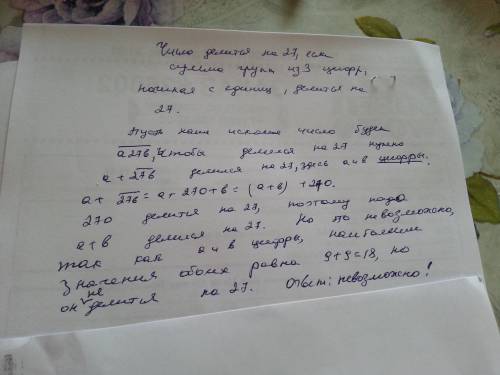 Число делится на 27, если
сумма групп из 3 цифр,
начиная с единиц, делится на
27.
Пусть наши искомое число будет
a27b, чтобы делился на 27 нужно
a + 27b делился на 27, здесь a и b цифры.
a + 27b = a + 270 + b = (a+b) + 270.
270 делится на 27, поэтому надо
a+b делился на 27. Но это невозможно,
так как a и b цифры, наибольшие
значения обоих равна 9+9=18, но
он не делится на 27. Ответ: невозможно!